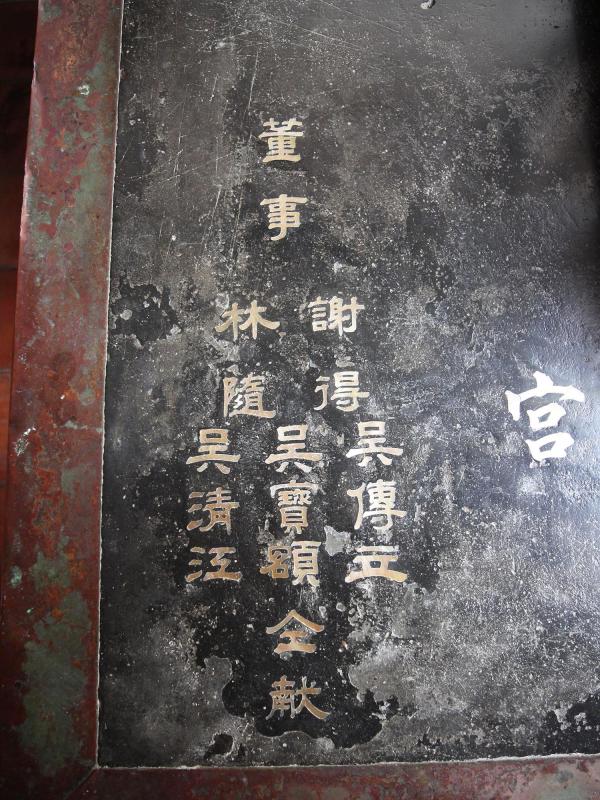 宮
董事
謝得
林隨
吳傳五
吳寶額
吳清江
仝献